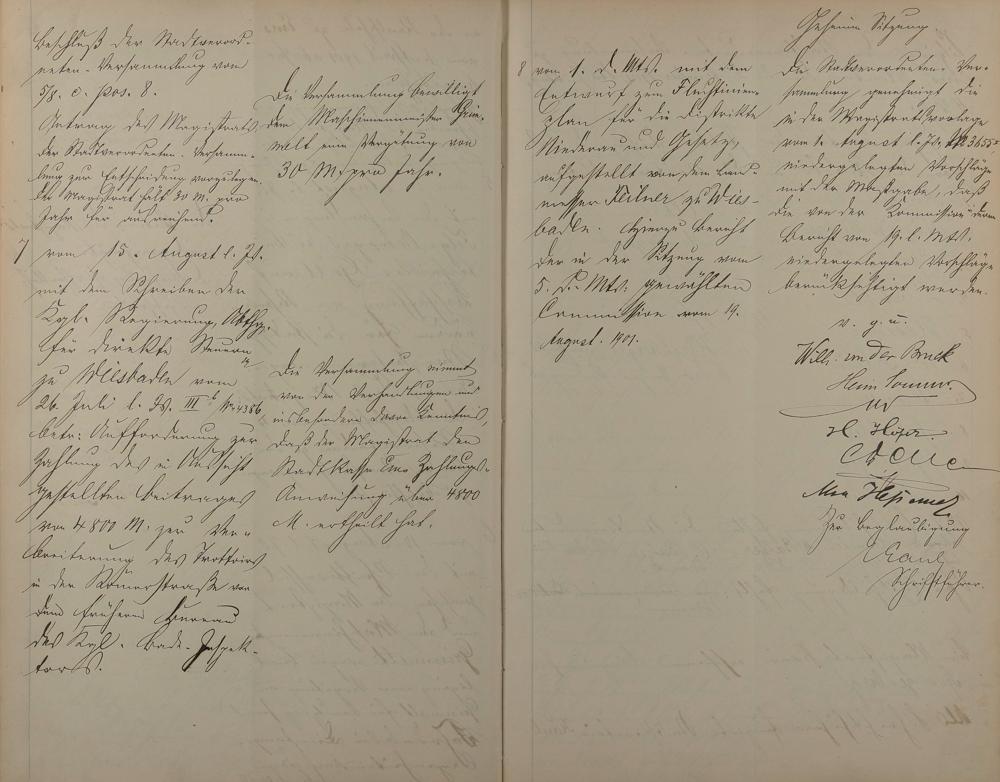 Beschluß der Stadtverord-
neten-Versammlung vom
5/8. c. pos. 8.
Antrag des Magistrats
der Stadtverordneten-Versamm-
lung zur Entscheidung vorzulegen.
Der Magistrat hält 30 M. pro
Jahr für ausreichend.
Die Versammlung bewilligt
dem Maschinenmeister Grün-
wald eine Vergütung von
30 M pro Jahr.
7 vom 15. August l. Js.
mit dem Schreiben der
Kgl. Regierung, Abthlg.
für direkte Steuern
zu Wiesbaden vom
26. Juli l. Js. III b № 4386
betr: Aufforderung zur
Zahlung des in Aussicht
gestellten Beitrages
von 4800 M. zur Ver-
breiterung des Trottoirs
in der Römerstraße von
dem frühern Bureau
des Kgl. Bade-Inspek-
tors.
Die Versammlung nimmt
von den Verhandlungen und
insbesondere davon Kenntniß,
daß der Magistrat den
Stadtkasse Zahlungs-
Anweisung über 4800
M. ertheilt hat.
8 vom 1. d. Mts. mit dem
Entwurf zum Fluchtlinien-
plan für die Distrikte
Niederau und
aufgestellt von dem Land-
messer zu Wies-
baden. Hierzu Bericht
der in der Sitzung vom
5. d. Mts. gewählten
Commission vom 19.
August 1901.
Geheime Sitzung.
Die Stadtverordneten-Ver-
sammlung genehmigt die
in der Magistratsvorlage
vom 1. August l. Js. № 3655
niedergelegten Vorschläge
mit der Maßgabe, daß
die von der Commission in deren
Bericht vom 19. l. Mts.
niedergelegten Vorschläge
berücksichtigt werden.
v. g. u.
Wilh. von der Bruck
H.
Zur Beglaubigung
Schriftführer.